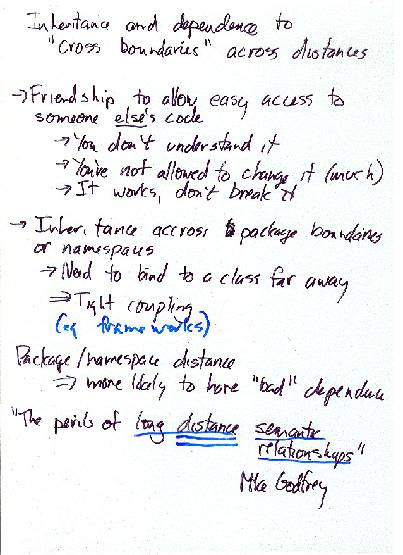 Inheritance and dependence to
"cross boundaries" across distances
→ Friendship to allow easy access to
someone else's code
→ You don't understand it
→ You're not allowed to change it (much)
→ It works, don't break it
→ Inheritance accross package boundaries
or namespaces
→ Need to bind to a class far away
⇒ Tight coupling
(eg frameworks)
Package/namespace distance
⇒ more likely to have "bad" dependence
"The perils of long distance semantic
relationships"
Mike Godfrey